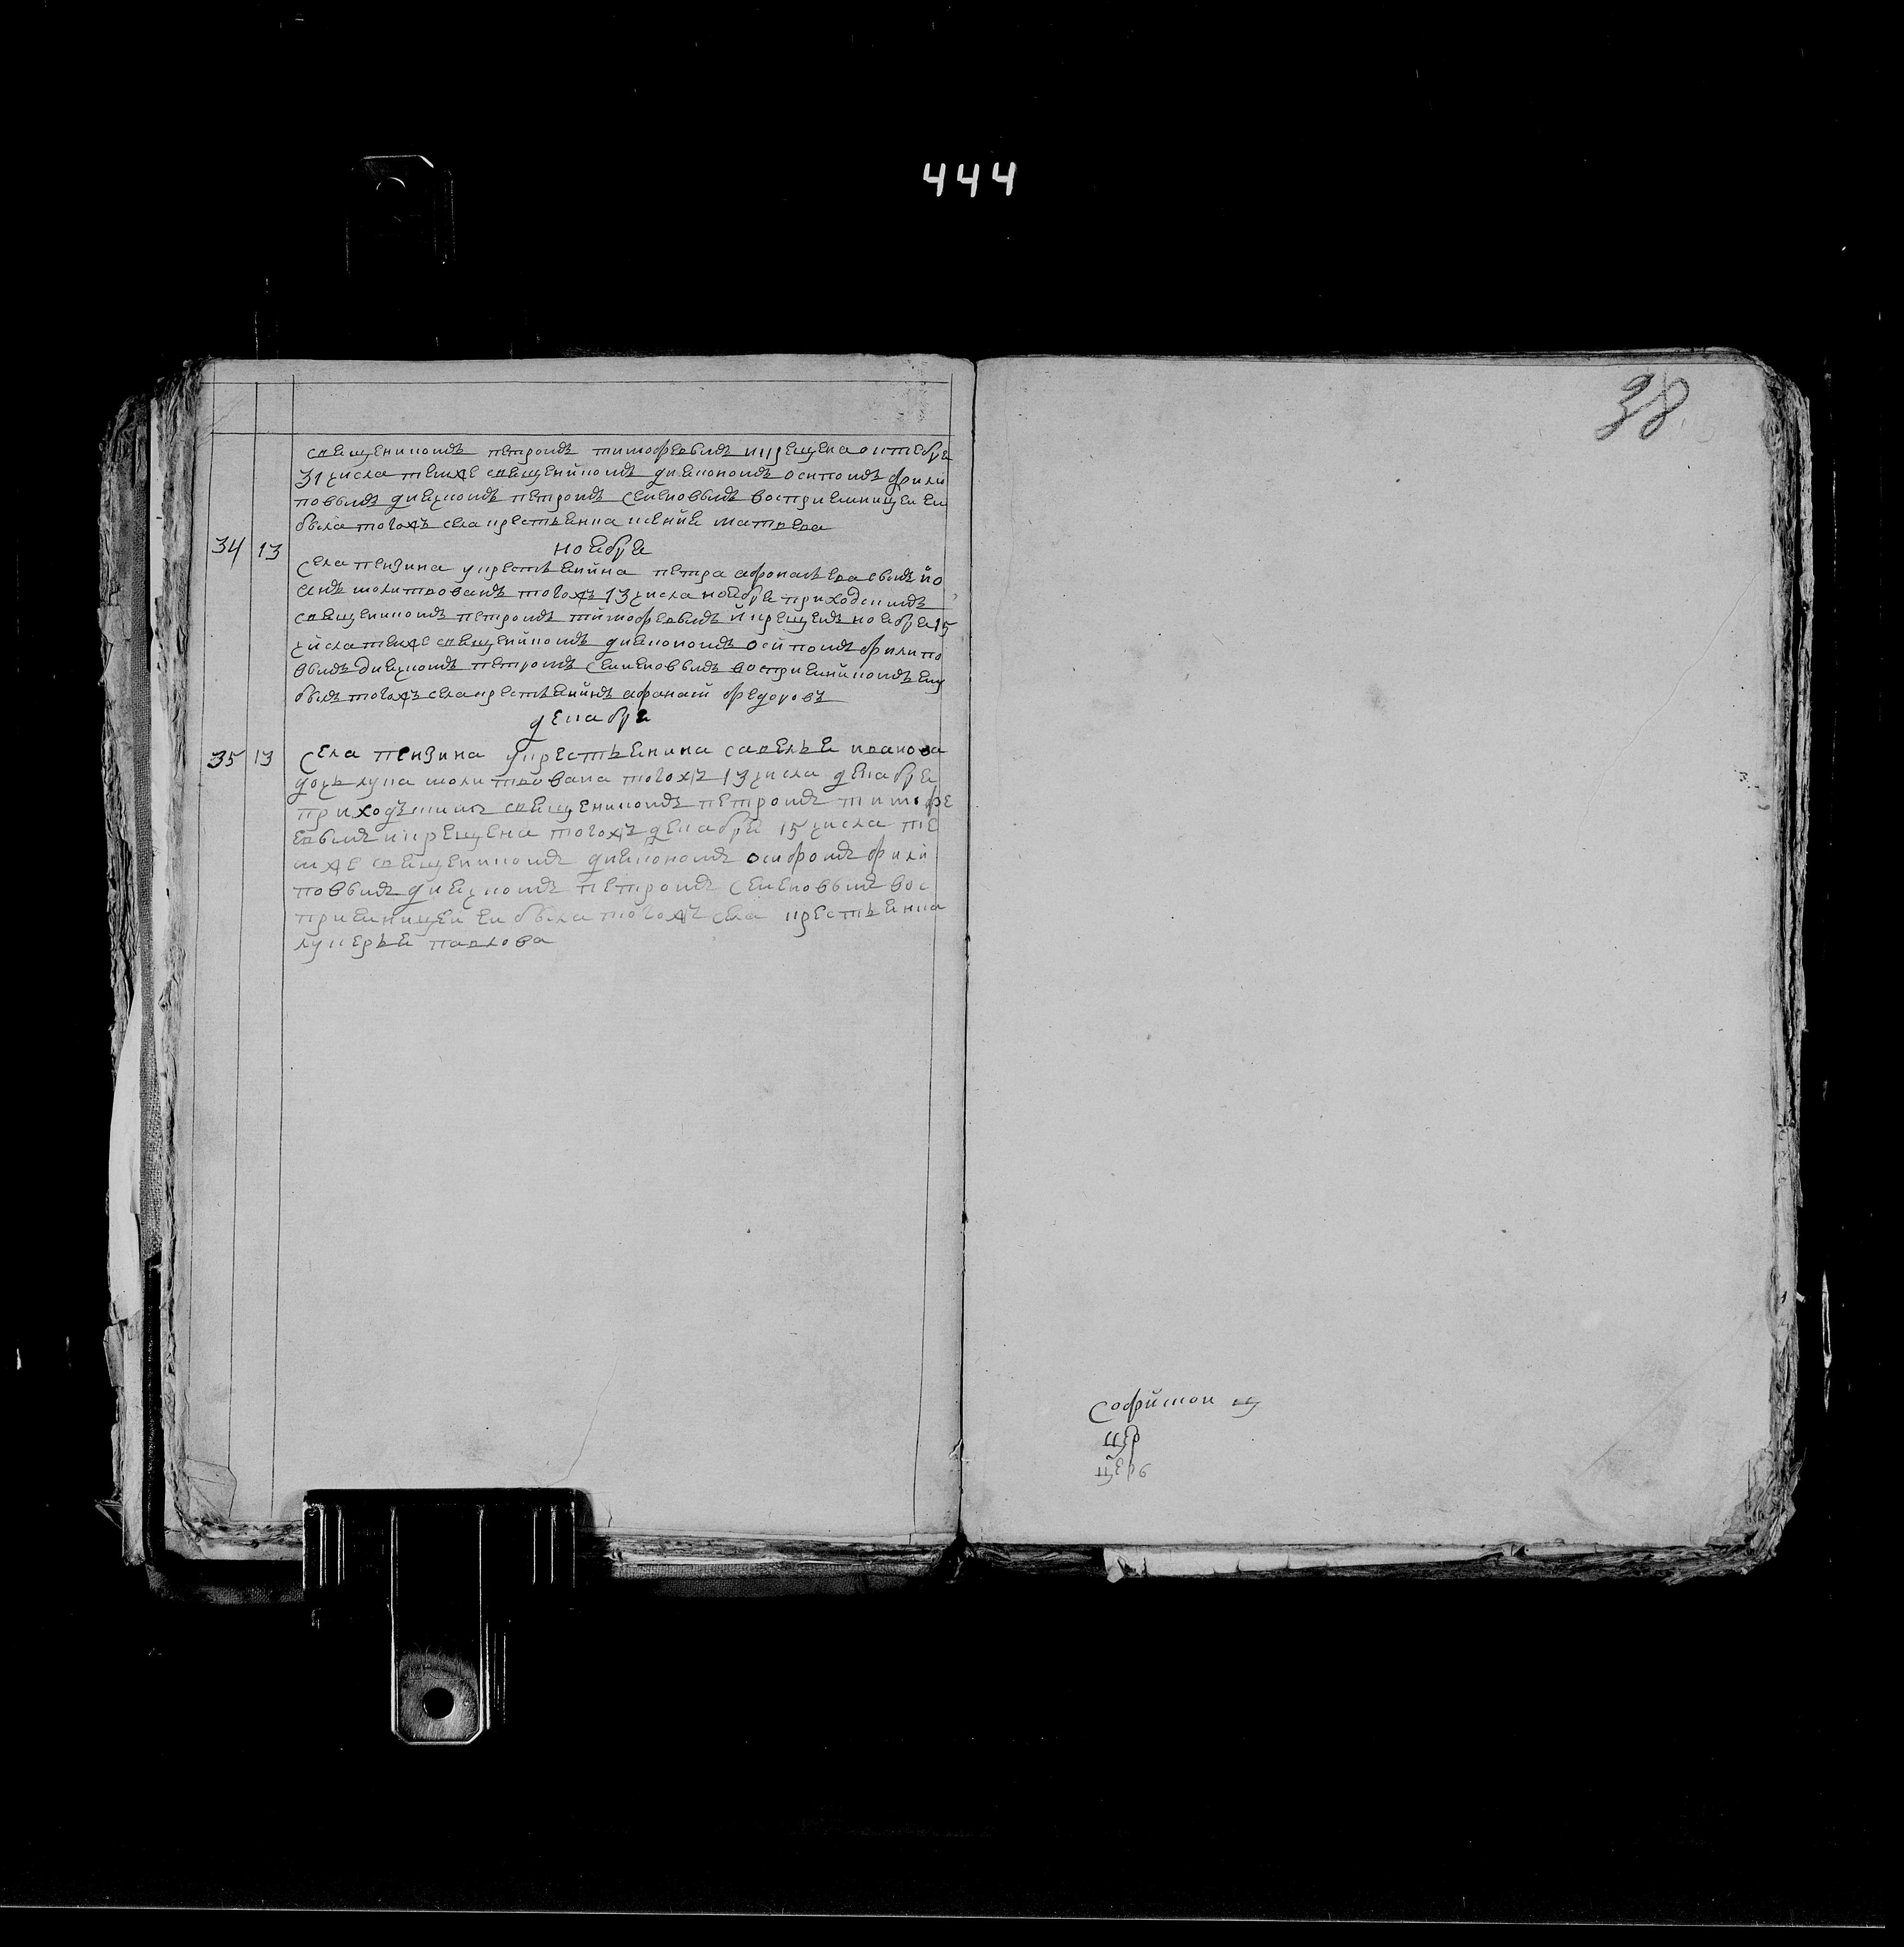 444
38
священникомъ петромъ тимофѣевымъ и крещена октебре
31 числа темже священникомъ диекономъ осипомъ фили
повымъ диечкомъ петромъ семеновымъ восприемницеи еи
была тогожъ села крестьенка ксение матвева
34 13 ноебре
села пензина у крестьенина петра афонасьева сынъ
молитвованъ тогожъ 13 числа ноебре приходскимъ
священникомъ петромъ тимофевымъ и крещенъ ноебре 15
числа темже священникомъ диекономъ осипомъ филипо
вымъ диечкомъ петромъ семеновымъ восприемникомъ ему
былъ тогожъ села крестьенинъ афанасий федоровъ
декабре
35 13 села пензина у крестьенина савелье иванова
дочь молитвована тогожъ 13 числа декабре
приходскимъ священникомъ петромъ тимофе
евымъ и крещена тогожъ декабре 15 числа те
мже священникомъ диекономъ осифомъ фили
повымъ диечкомъ петромъ семеновымъ вос
приемницеи еи была тогожъ села крестьенка
лукерье павлова